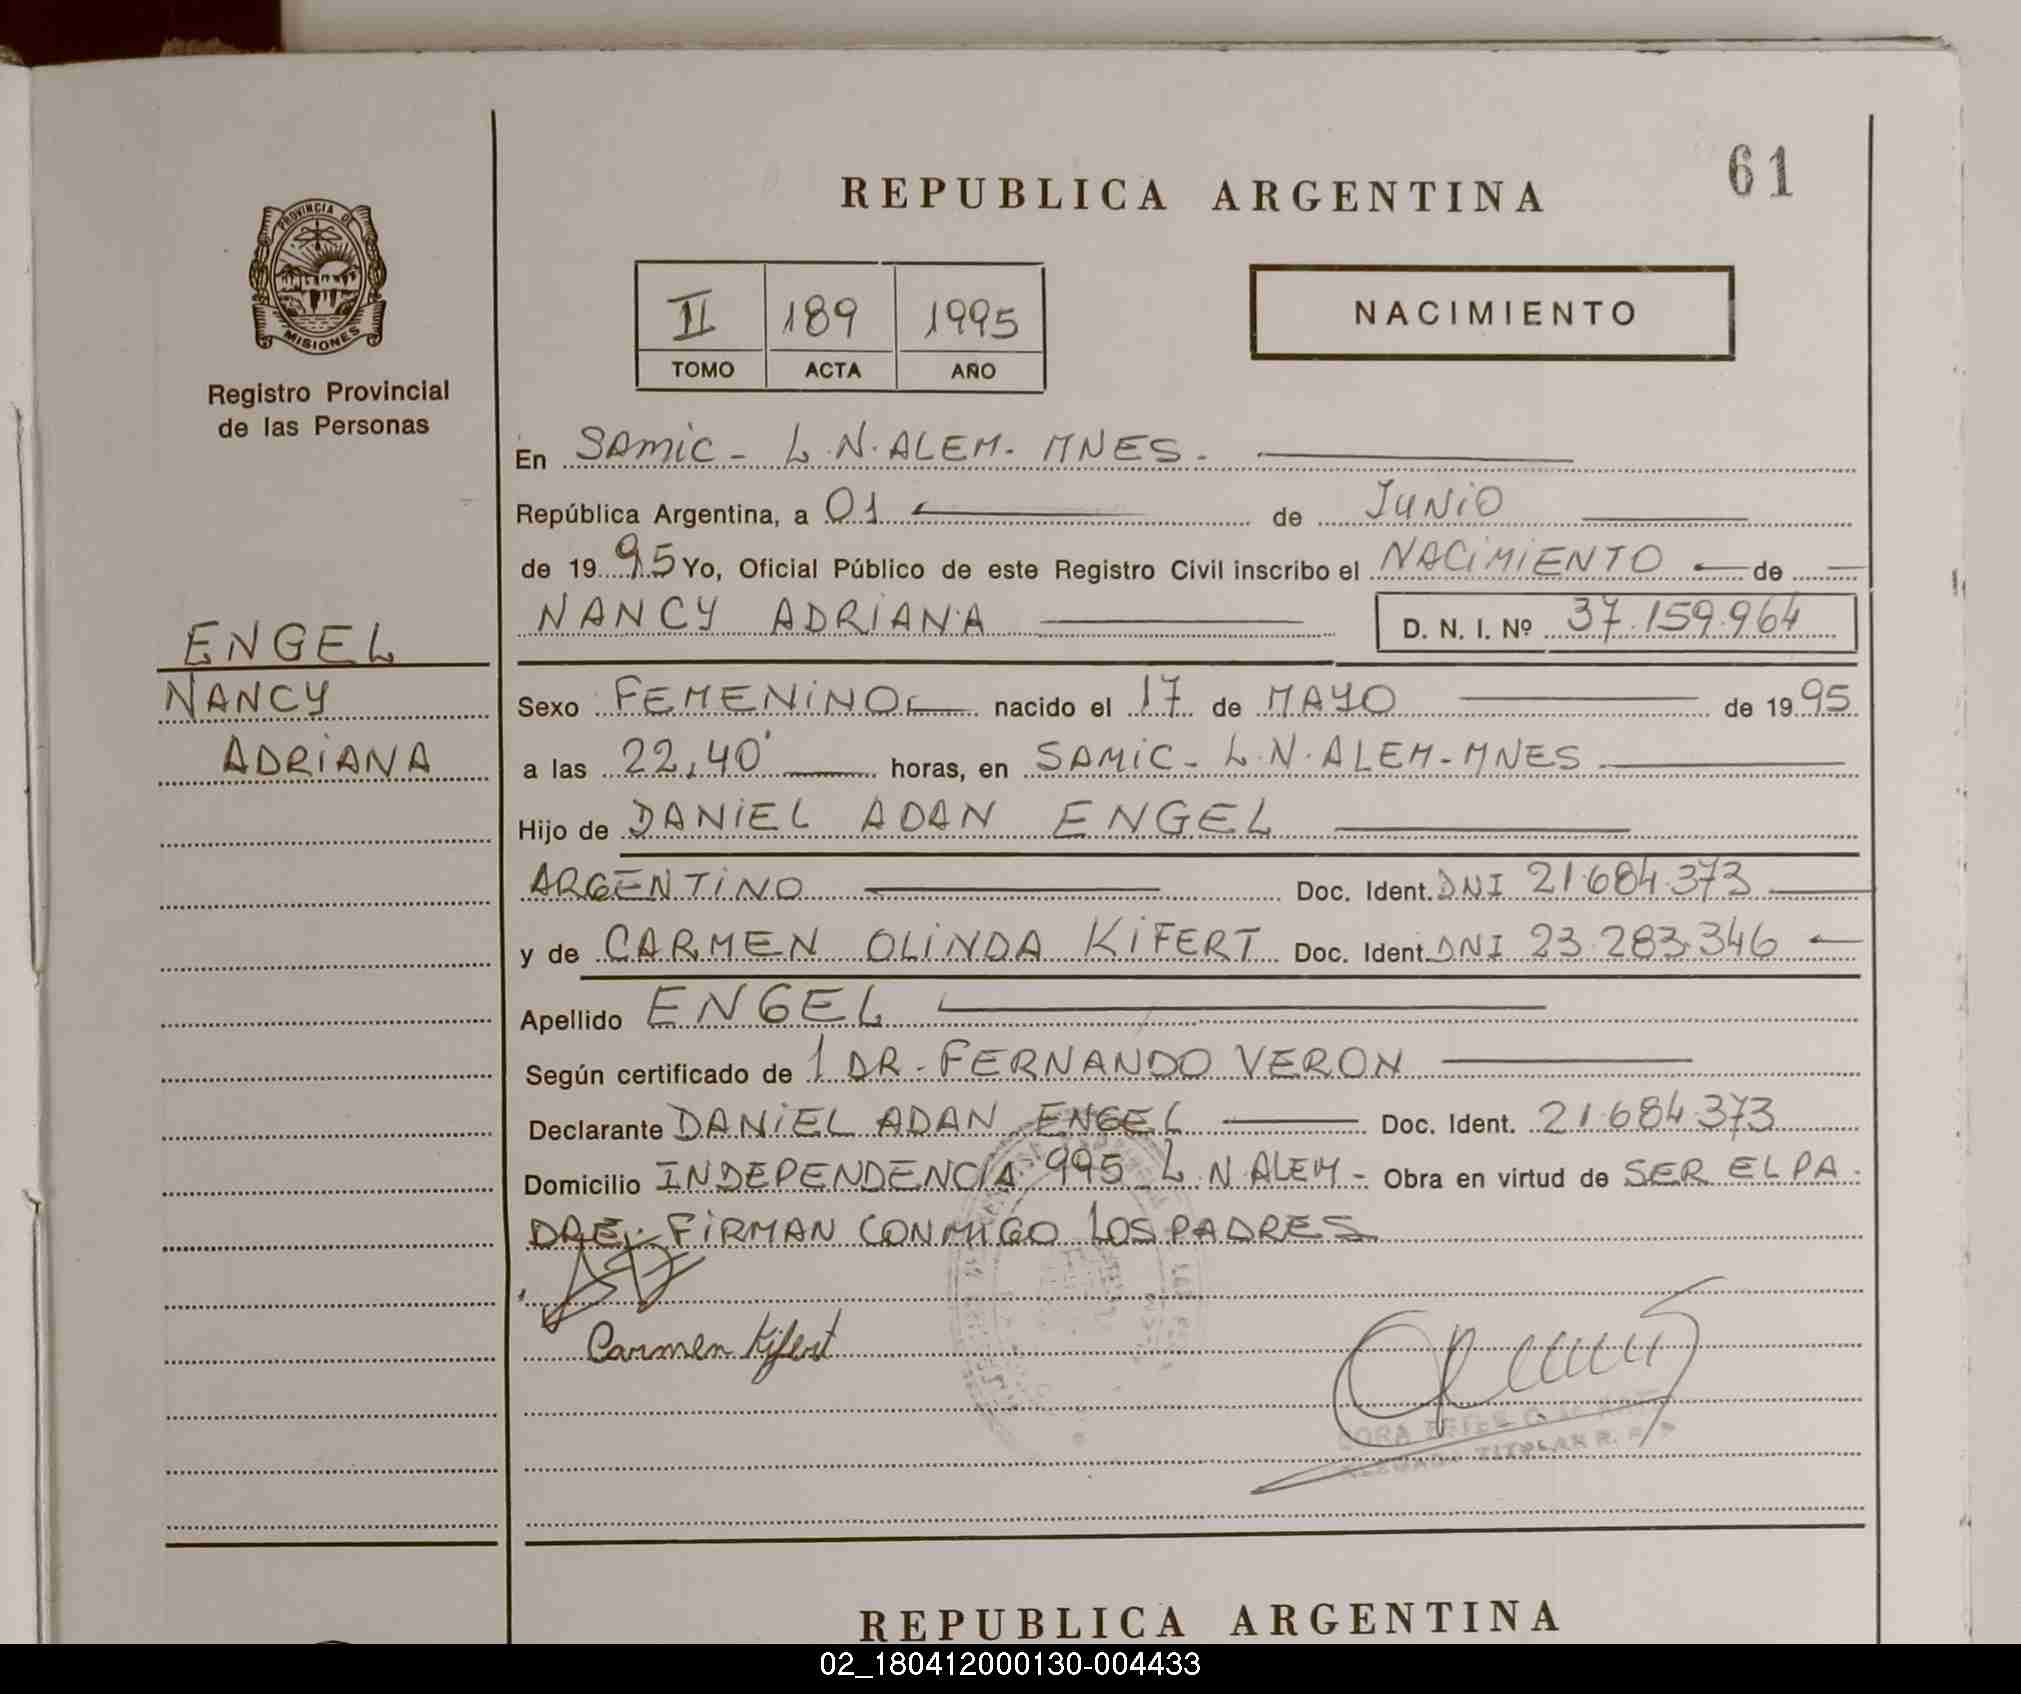 61
REPUBLICA ARGENTINA
PROVINCIA DE
MISIONES
Registro Provincial
de las Personas
II 189 1995
TOMO ACTA AÑO
NACIMIENTO
En SAMIC - L.N.ALEM - MNES -
República Argentina, a 01 de JUNIO
de 1995 Yo, Oficial Público de este Registro Civil inscribo el NACIMIENTO de
NANCY ADRIANA D. N. I. Nº 37.159.964
ENGEL
NANCY
ADRIANA
Sexo FEMENINO nacido el 17 de MAYO de 1995
a las 22,40' horas, en SAMIC - L.N.ALEM - MNES
Hijo de DANIEL ADAN ENGEL
ARGENTINO Doc. Ident. DNI 21.684.373
y de CARMEN OLINDA KIFERT Doc. Ident. DNI 23.283.346
Apellido ENGEL
Según certificado de 1 DR. FERNANDO VERON
Declarante DANIEL ADAN ENGEL Doc. Ident. 21.684.373
Domicilio INDEPENDENCIA 995 L.N.ALEM - Obra en virtud de SER EL PA-
DRE.- FIRMAN CONMIGO LOS PADRES
Carmen Kifert
REPUBLICA ARGENTINA
02_180412000130-004433